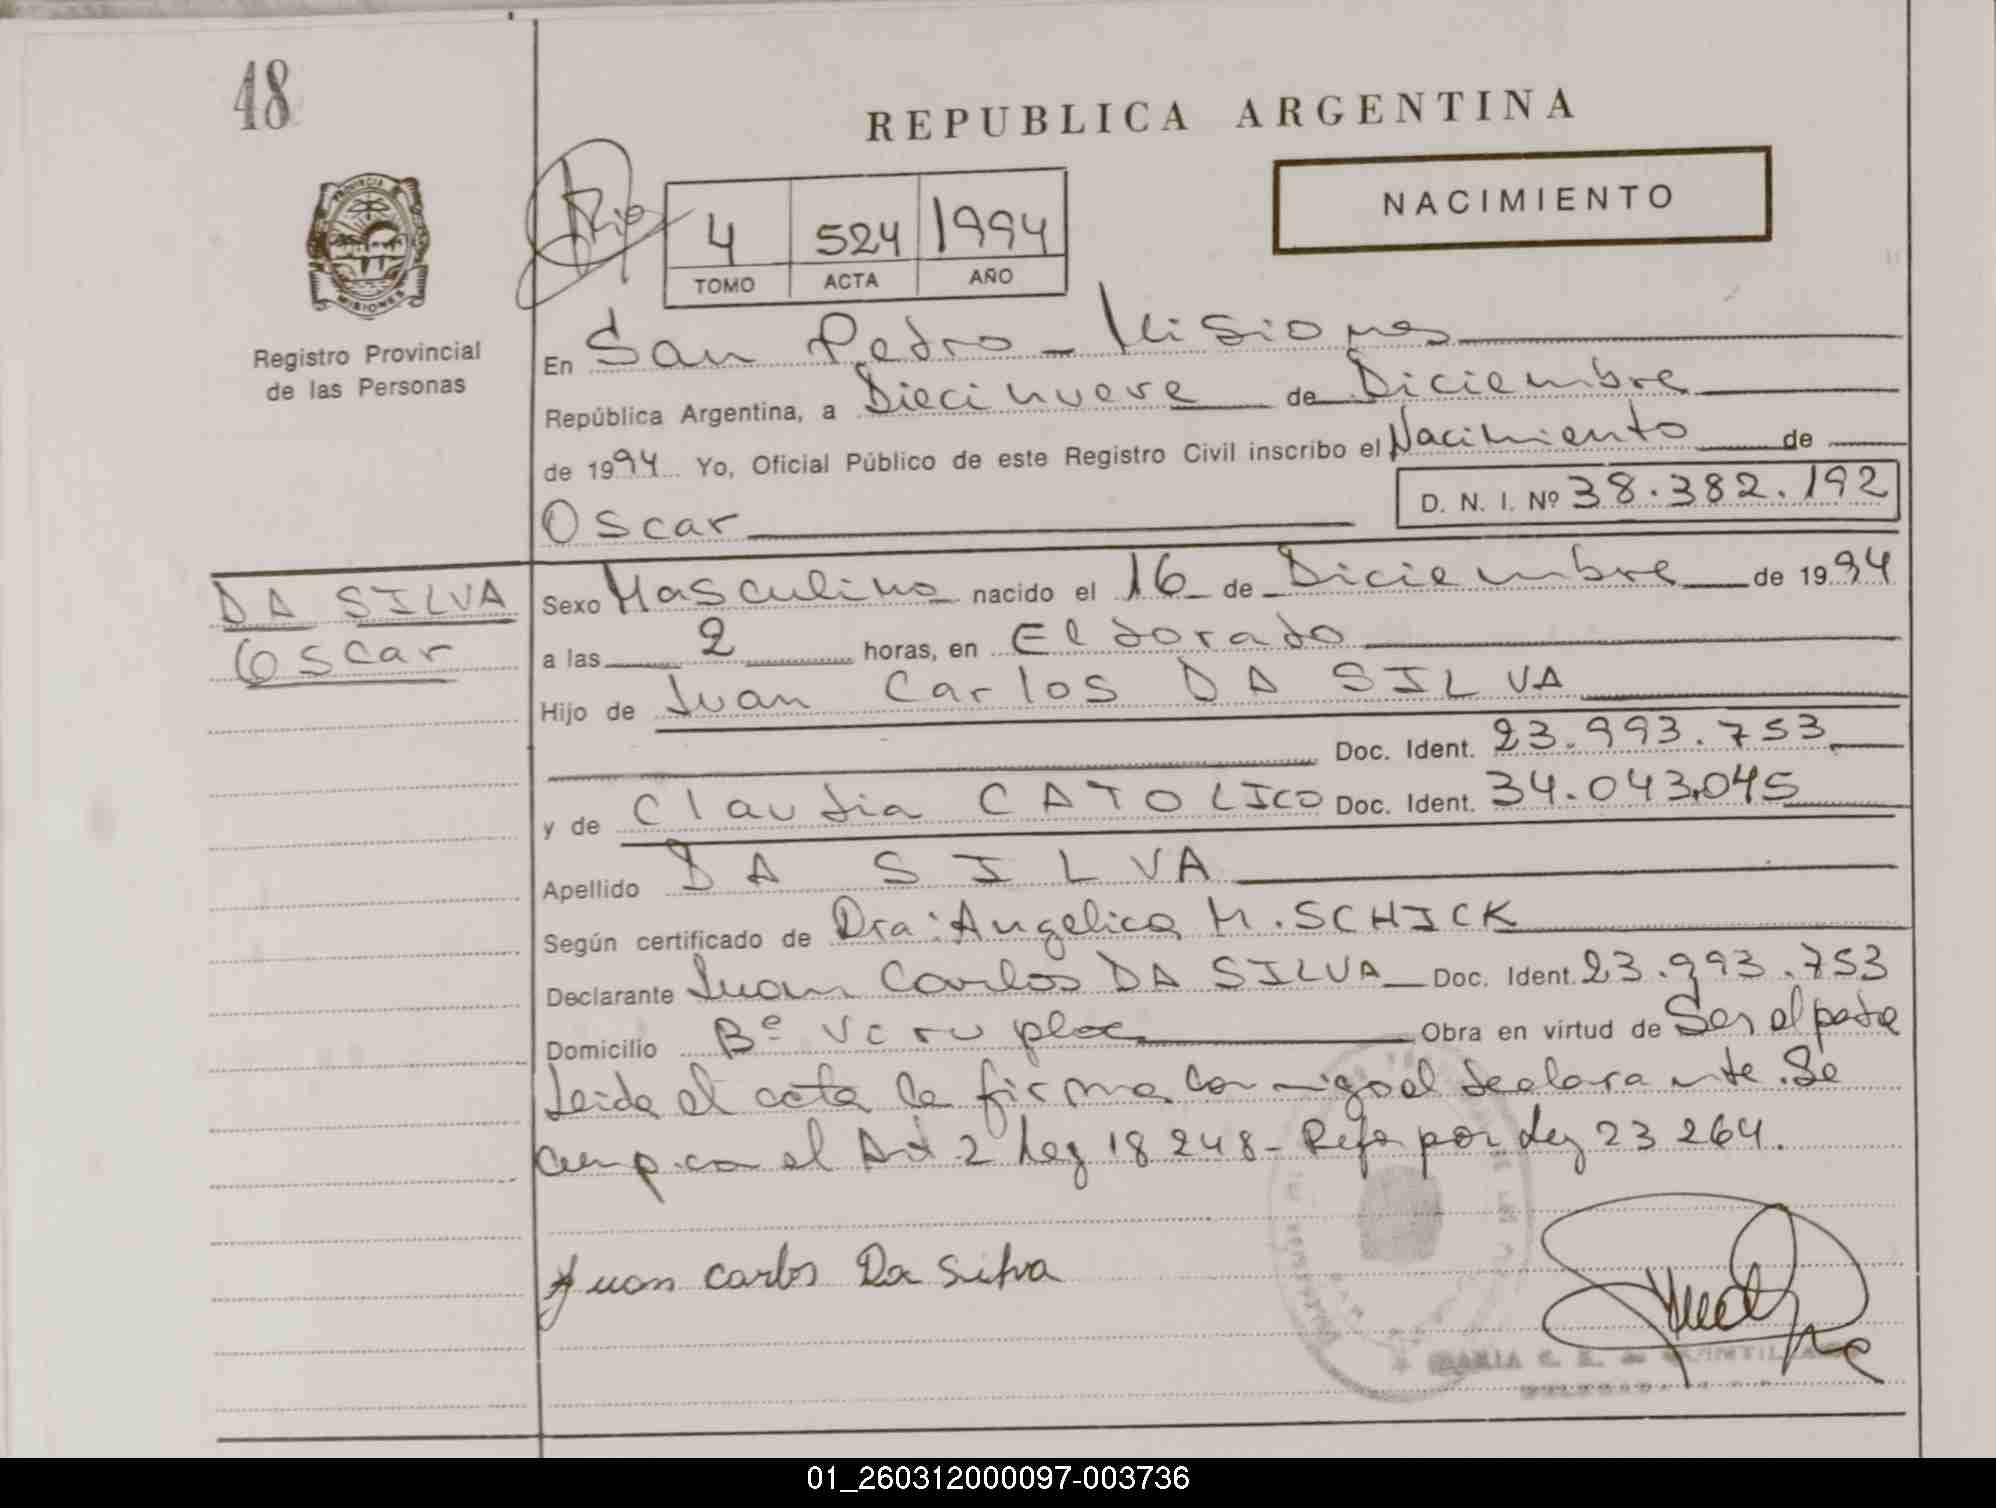 48
REPUBLICA ARGENTINA
NACIMIENTO
4 524 1994
TOMO ACTA AÑO
PROVINCIA DE
MISIONES
Registro Provincial
de las Personas
En San Pedro - Misiones
República Argentina, a Diecinueve de Diciembre
de 1994 Yo, Oficial Público de este Registro Civil inscribo el Nacimiento de
D. N. I. Nº 38.382.192
Oscar
DA SILVA
Oscar
Sexo Masculino nacido el 16 de Diciembre de 1994
a las 2 horas, en Eldorado
Hijo de Juan Carlos DA SILVA
Doc. Ident. 23.993.753
y de Claudia CATOLICO Doc. Ident. 34.043.045
Apellido DA SILVA
Según certificado de Dra: Angelica M. SCHICK
Declarante Juan Carlos DA SILVA Doc. Ident. 23.993.753
Domicilio Bº Obra en virtud de Ser el padre
Leida el acta la firma conmigo el declarante. Se
cump. con el Art 2 Ley 18 248 - Refo por Ley 23 264.
Juan Carlos Da Silva
MARIA C. E. de
01_260312000097-003736